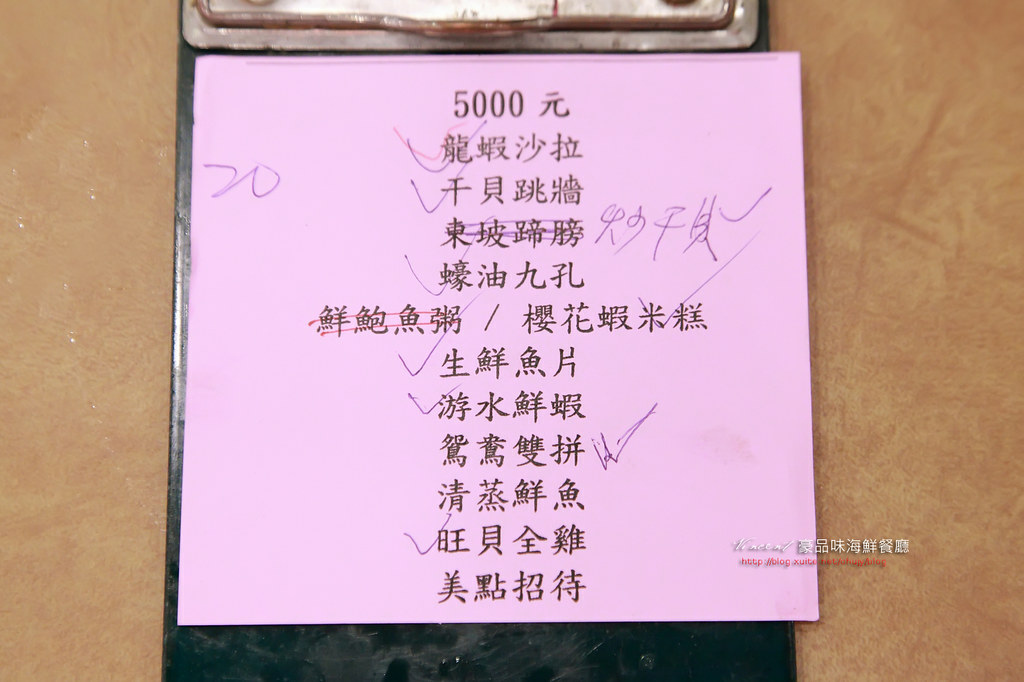 5000 元
龍蝦沙拉
20
干貝跳牆
東坡蹄膀 炒干貝
蠔油九孔
鮮鮑魚粥 / 櫻花蝦米糕
生鮮魚片
游水鮮蝦
鴛鴦雙拼
清蒸鮮魚
旺貝全雞
美點招待
Vincent 豪品味海鮮餐廳